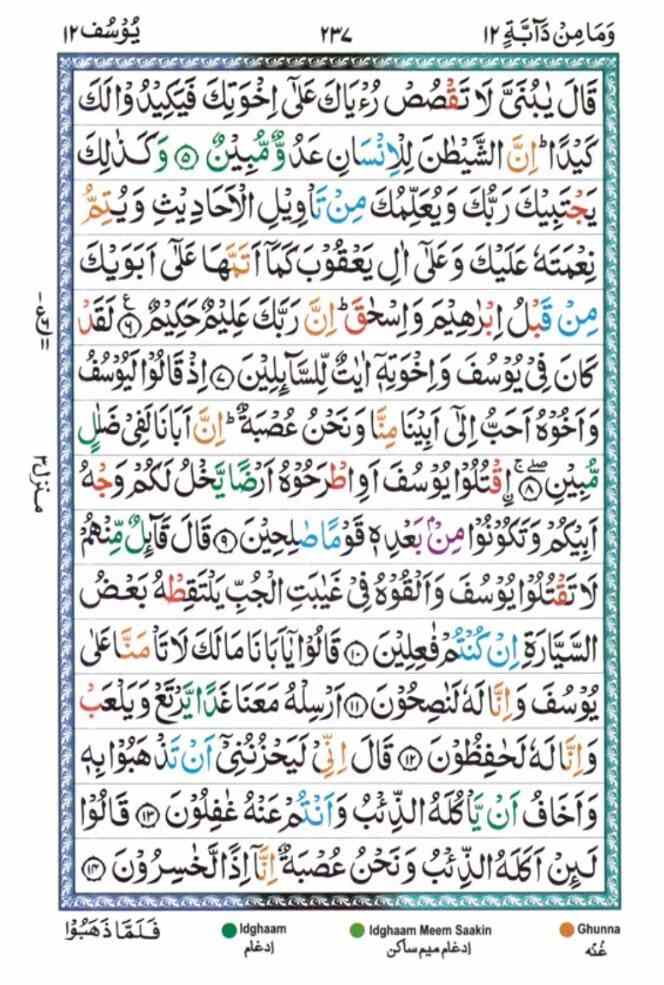 وَمَا مِنْ دَآبَّةٍ ١٢ ٢٣٧ يُوْسُف ١٢
قَالَ يٰبُنَیَّ لَا تَقْصُصْ رُءْيَاكَ عَلٰٓى اِخْوَتِكَ فَيَكِيْدُوْا لَكَ
كَيْدًا ؕ اِنَّ الشَّيْطٰنَ لِلْاِنْسَانِ عَدُوٌّ مُّبِيْنٌ ۝٥ وَكَذٰلِكَ
يَجْتَبِيْكَ رَبُّكَ وَيُعَلِّمُكَ مِنْ تَاْوِيْلِ الْاَحَادِيْثِ وَيُتِمُّ
نِعْمَتَهٗ عَلَيْكَ وَعَلٰٓى اٰلِ يَعْقُوْبَ كَمَآ اَتَمَّهَا عَلٰٓى اَبَوَيْكَ
مِنْ قَبْلُ اِبْرٰهِيْمَ وَاِسْحٰقَ ؕ اِنَّ رَبَّكَ عَلِيْمٌ حَكِيْمٌ ۝٦ ع لَقَدْ
كَانَ فِيْ يُوْسُفَ وَاِخْوَتِهٖٓ اٰيٰتٌ لِّلسَّآئِلِيْنَ ۝٧ اِذْ قَالُوْا لَيُوْسُفُ
وَاَخُوْهُ اَحَبُّ اِلٰٓى اَبِيْنَا مِنَّا وَنَحْنُ عُصْبَةٌ ؕ اِنَّ اَبَانَا لَفِيْ ضَلٰلٍ
مُّبِيْنِ ۝٨ اۨقْتُلُوْا يُوْسُفَ اَوِ اطْرَحُوْهُ اَرْضًا يَّخْلُ لَكُمْ وَجْهُ
اَبِيْكُمْ وَتَكُوْنُوْا مِنْۢ بَعْدِهٖ قَوْمًا صٰلِحِيْنَ ۝٩ قَالَ قَآئِلٌ مِّنْهُمْ
لَا تَقْتُلُوْا يُوْسُفَ وَاَلْقُوْهُ فِيْ غَيٰبَتِ الْجُبِّ يَلْتَقِطْهُ بَعْضُ
السَّيَّارَةِ اِنْ كُنْتُمْ فٰعِلِيْنَ ۝١٠ قَالُوْا يٰٓاَبَانَا مَا لَكَ لَا تَاْمَنَّا عَلٰى
يُوْسُفَ وَاِنَّا لَهٗ لَنٰصِحُوْنَ ۝١١ اَرْسِلْهُ مَعَنَا غَدًا يَّرْتَعْ وَيَلْعَبْ
وَاِنَّا لَهٗ لَحٰفِظُوْنَ ۝١٢ قَالَ اِنِّيْ لَيَحْزُنُنِيْٓ اَنْ تَذْهَبُوْا بِهٖ
وَاَخَافُ اَنْ يَّاْكُلَهُ الذِّئْبُ وَاَنْتُمْ عَنْهُ غٰفِلُوْنَ ۝١٣ قَالُوْا
لَئِنْ اَكَلَهُ الذِّئْبُ وَنَحْنُ عُصْبَةٌ اِنَّآ اِذًا لَّخٰسِرُوْنَ ۝١٤
منزل ٣
فَلَمَّا ذَهَبُوْا
Idghaam
ادغام
Idghaam Meem Saakin
ادغام میم ساکن
Ghunna
غُنّه